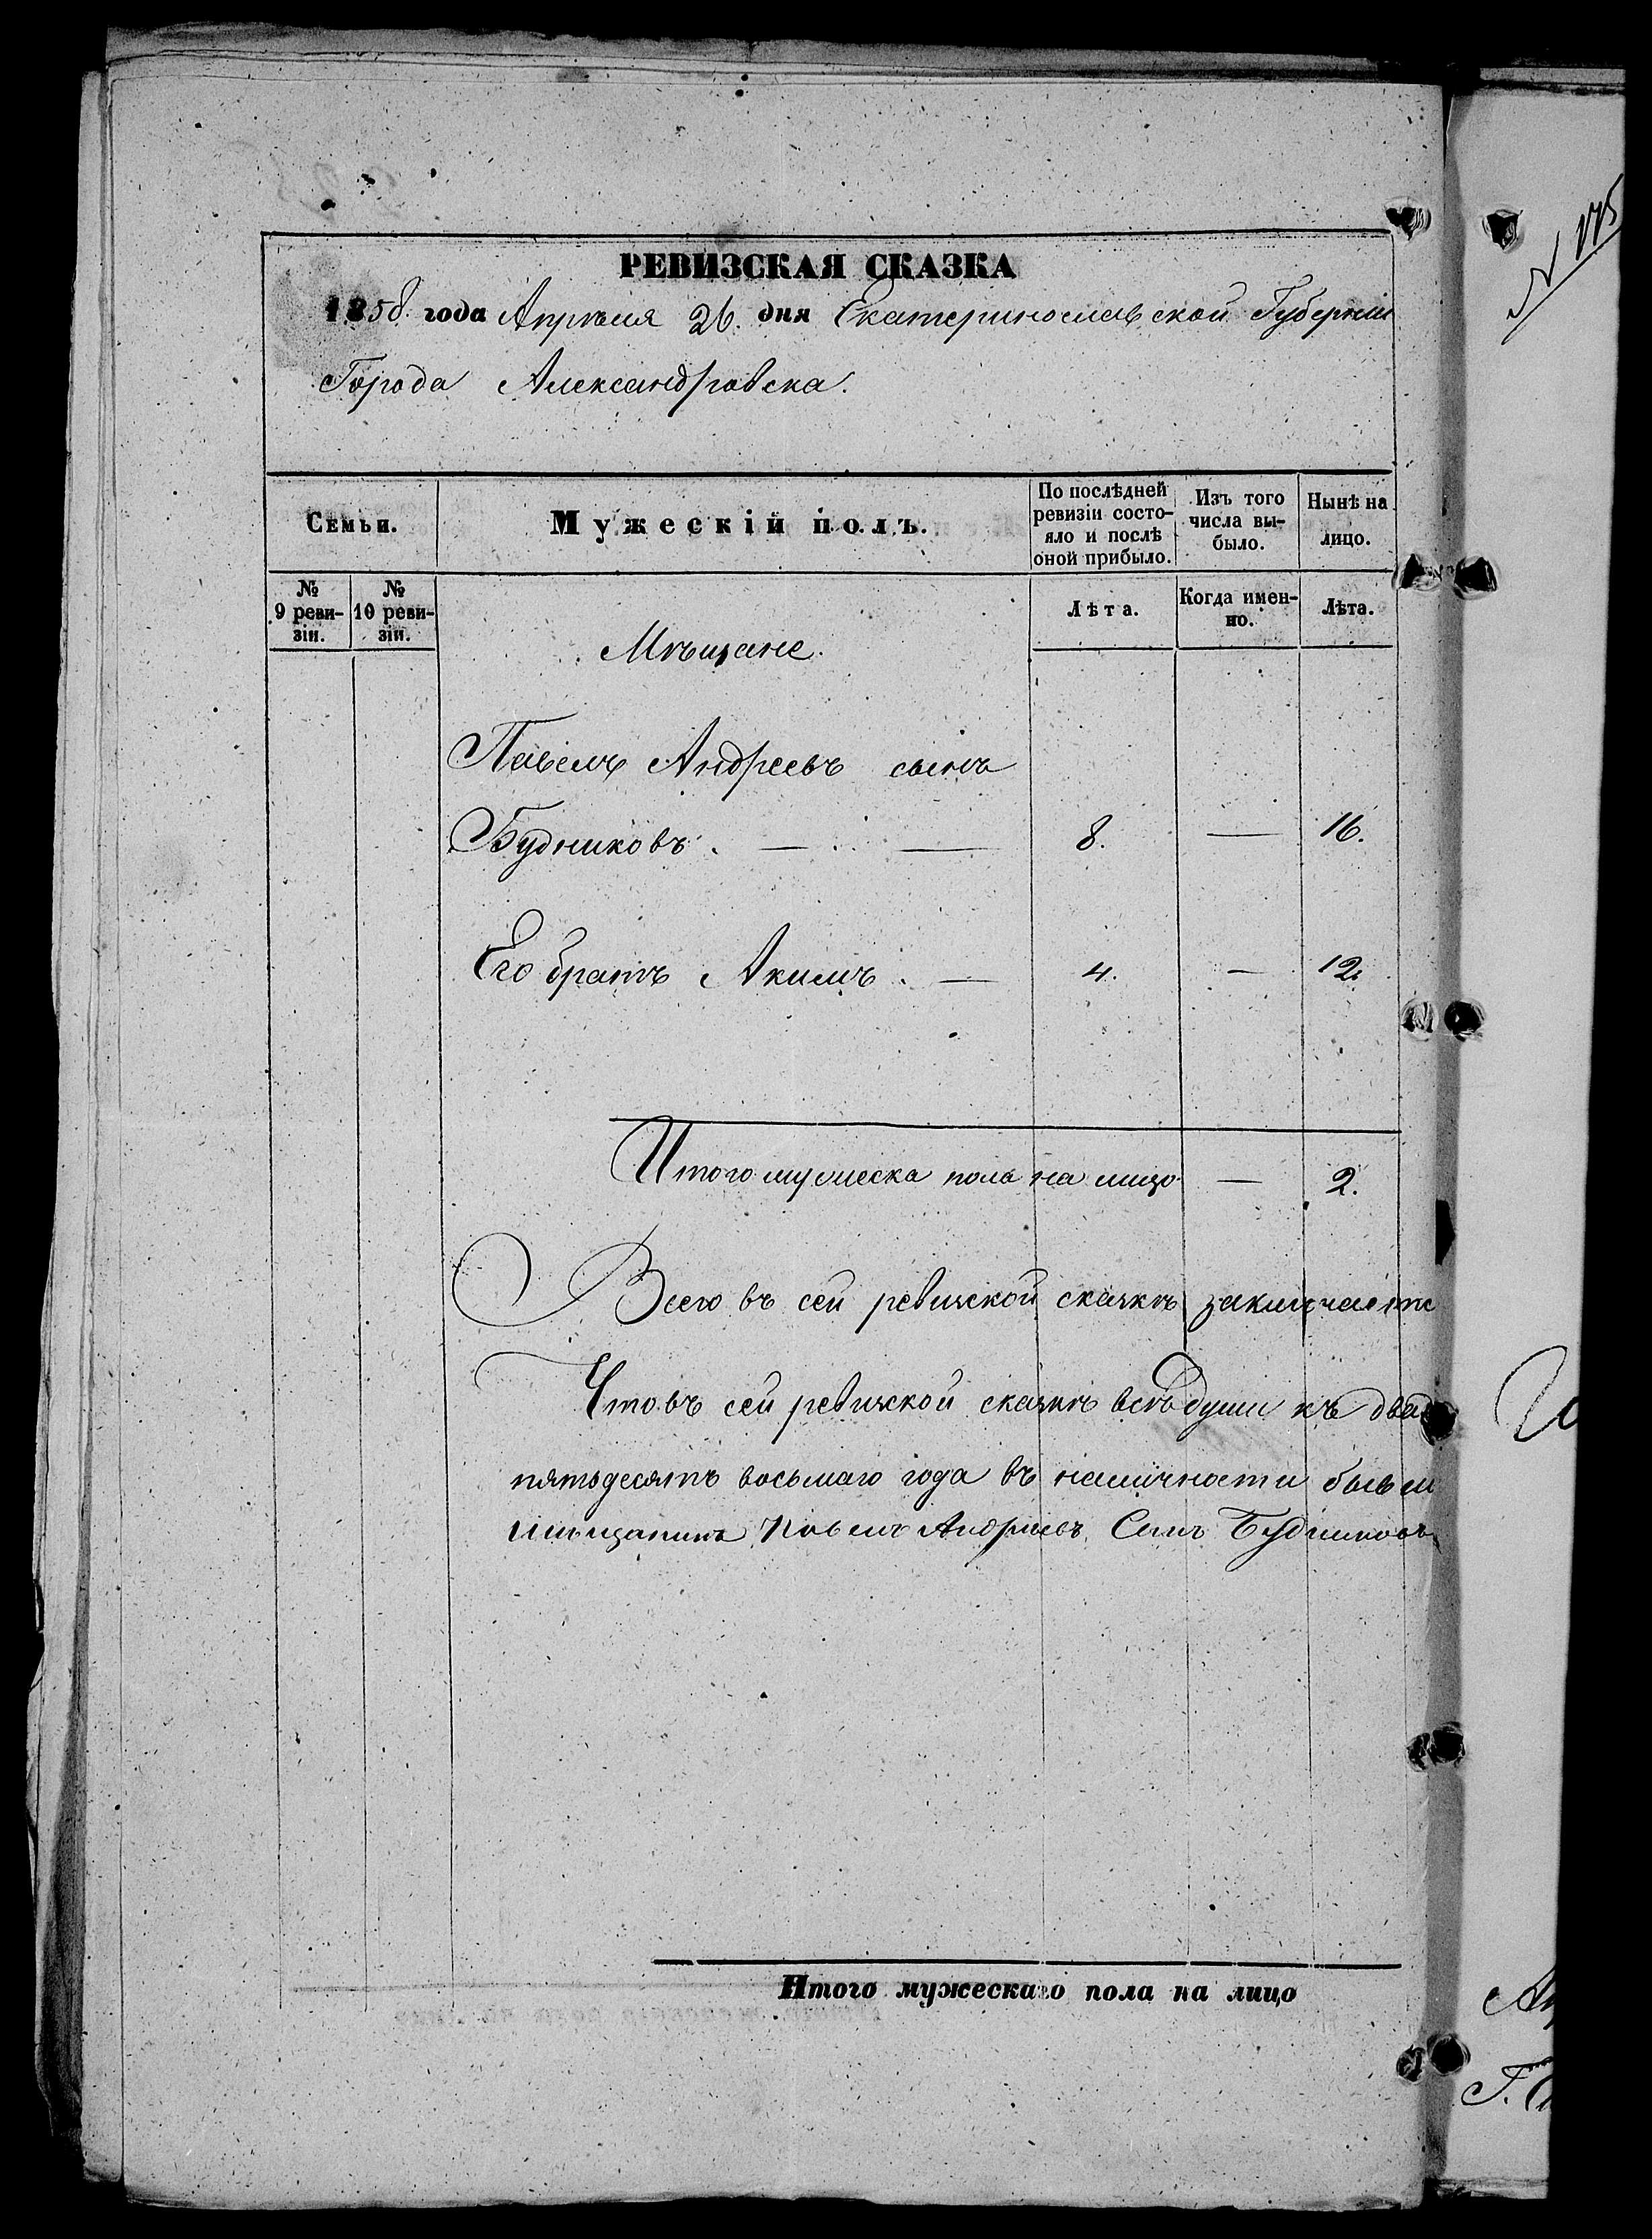 РЕВИЗСКАЯ СКАЗКА
1858. года Апрѣля 26. дня Екатеринославской Губерніи
Города Александровска.
Семьи.
Мужескій полъ.
По послѣдней ревизіи состо-
яло и послѣ
оной прибыло.
Изъ того
числа вы-
было.
Нынѣ на
лицо.
№
9 реви-
зіи.
№
10 реви-
зіи.
Лѣта.
Когда имен-
но.
Лѣта.
Мѣщане.
Павелъ Андреевъ сынъ
Будниковъ. — — 8. — 16.
Его братъ Акимъ. — 4. — 12.
Итого мужеска пола на лицо — 2.
Всего въ сей ревизской сказкѣ заключаетс
Что въ сей ревизской сказкѣ всѣ души къ
пятьдесятъ восьмаго года въ наличности были
мѣщанинъ Павелъ Андреевъ Сынъ Будниковъ
Итого мужескаго пола на лицо
№ 175